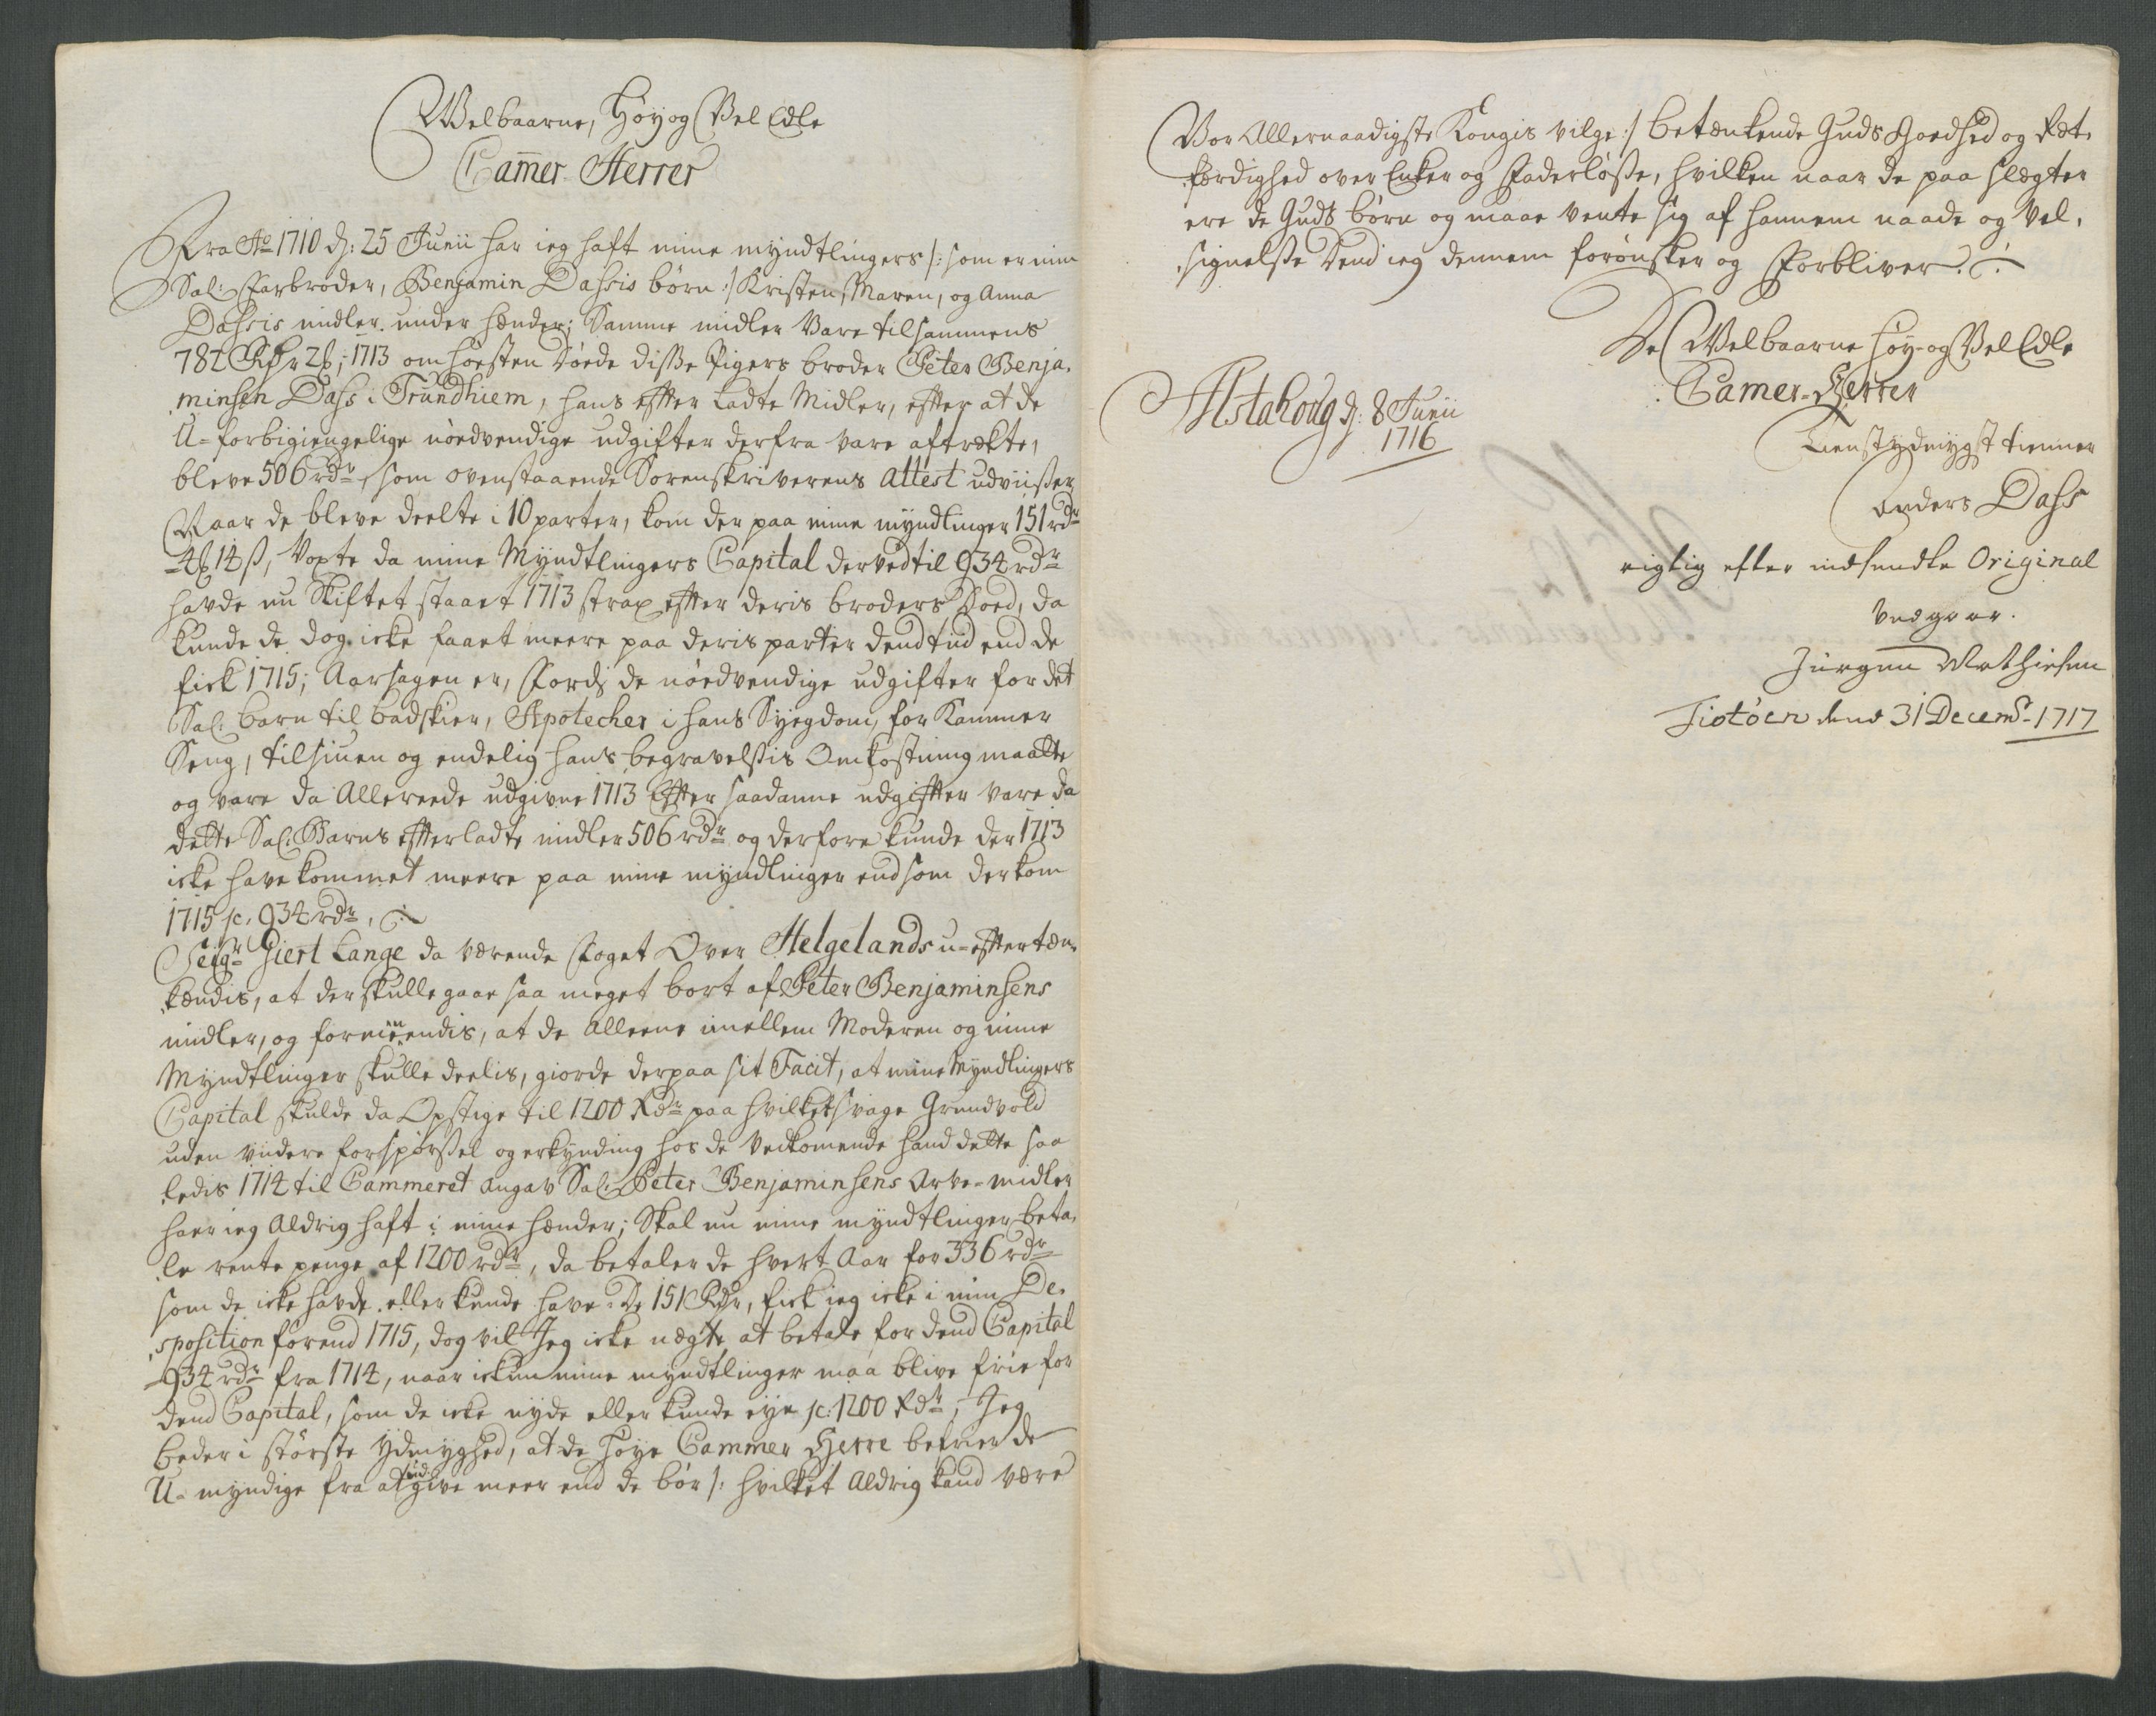 Welbaarne, Høy og Vel Edle
Cam̄er Herrer
Fra Ao 1710 d: 25 Junii har ieg haft mine myndtlingers /: som er min
Sal: Farbroder, Benjamin Dassis børn :/ Kristen, Maren, og Anna
Dassis midler under hænder; Samme midler Vare tilsammens
782 Rdr 2 ; 1713 om høsten døede disse Pigers broder Peter Benja-
minsen Dass i Trundhiem, hans effter ladte Midler, effter at de
U-forbigiengelige nødvendige udgifter derfra vare aftrekte,
bleve 506 rdr, som ovenstaaende Sorenskriverens Attest udviisser
Naar de bleve deelte i 10 parter, kom der paa mine myndlinger 151 rdr
4 14 ß, Voxte da mine Myndtlingers Capital derved til 934 rdr
havde nu Skiftet staaet 1713 strax effter deris broders Død, da
kunde de dog icke faaet meere paa deris parter dend tiid end de
fick 1715; Aarsagen er, Fordj de nødvendige udgifter for det
Sal: barn til badskier, Apotecher i hans Sygdom, for Kammer
Seng, tilsiuen og endelig hans begravelssis Omkostning maatte
og vare da Allereede udgivne 1713 Effter saadanne udgiffter vare da
dette Sal: Barns effterladte midler 506 rdr og derfore kunde der 1713
icke have kommet meere paa mine myndlinger end som der kom
1715 sc. 934 rdr.
Seigr Giert Lange da værende Foget Over Helgelands u-efftertæn-
kendis, at der skulle gaae saa meget bort af Peter Benjaminsens
midler, og formeenendis, at de Alleene imellem Moderen og mine
Myndtlinger skulle deelis, giorde derpaa sit Facit, at mine Myndlingers
Capital skulde da Opstige til 1200 Rdr paa hvilket svage Grundvold
uden viidere forspørssel og erkynding hos de Vedkomende hand dette saa
ledis 1714 til Cammeret angav Sal: Peter Benjaminsens Arve-midler
haer ieg Aldrig haft i mine hænder; Skal nu mine myndtlinger beta-
le rente penge af 1200 rdr, da betaler de hvert Aar for 336 rdr
som de icke havde eller kunde have. De 151 Rdr, fick ieg icke i min De-
sposition førend 1715, dog vil Jeg icke nægte at betale for dend Capital
934 rdr fra 1714, naar ickun mine myndtlinger maa blive frie for
dend Capital, som de icke nyde eller kunde eye sc: 1200 Rdr, Jeg
beder i største ydmyghed, at de høye Cammer Herre befrier de
U-myndige fra at udgive meer end de bør /: hvilket Aldrig kand være
Vor Allernaadigste Kongis vilge :/ betænkende Guds Goedhed og Ret-
færdighed over Enker og Faderløsse, hvilken naar de paa slegter
ere de Guds børn og maae vente sig af hannem naade og Vel-
signelsse Dend ieg dennem forønsker og Forbliver.
De Welbaarne høy- og Vel Edle
Camer-Herrer
Alstahoug d: 8 Junii
1716
Tienstydmygst tienner
Anders Dass
rigtig efter indsendte Original
Vedgaar.
Jürgen Mathiesen
Tiøtøen dend 31 Decembr 1717